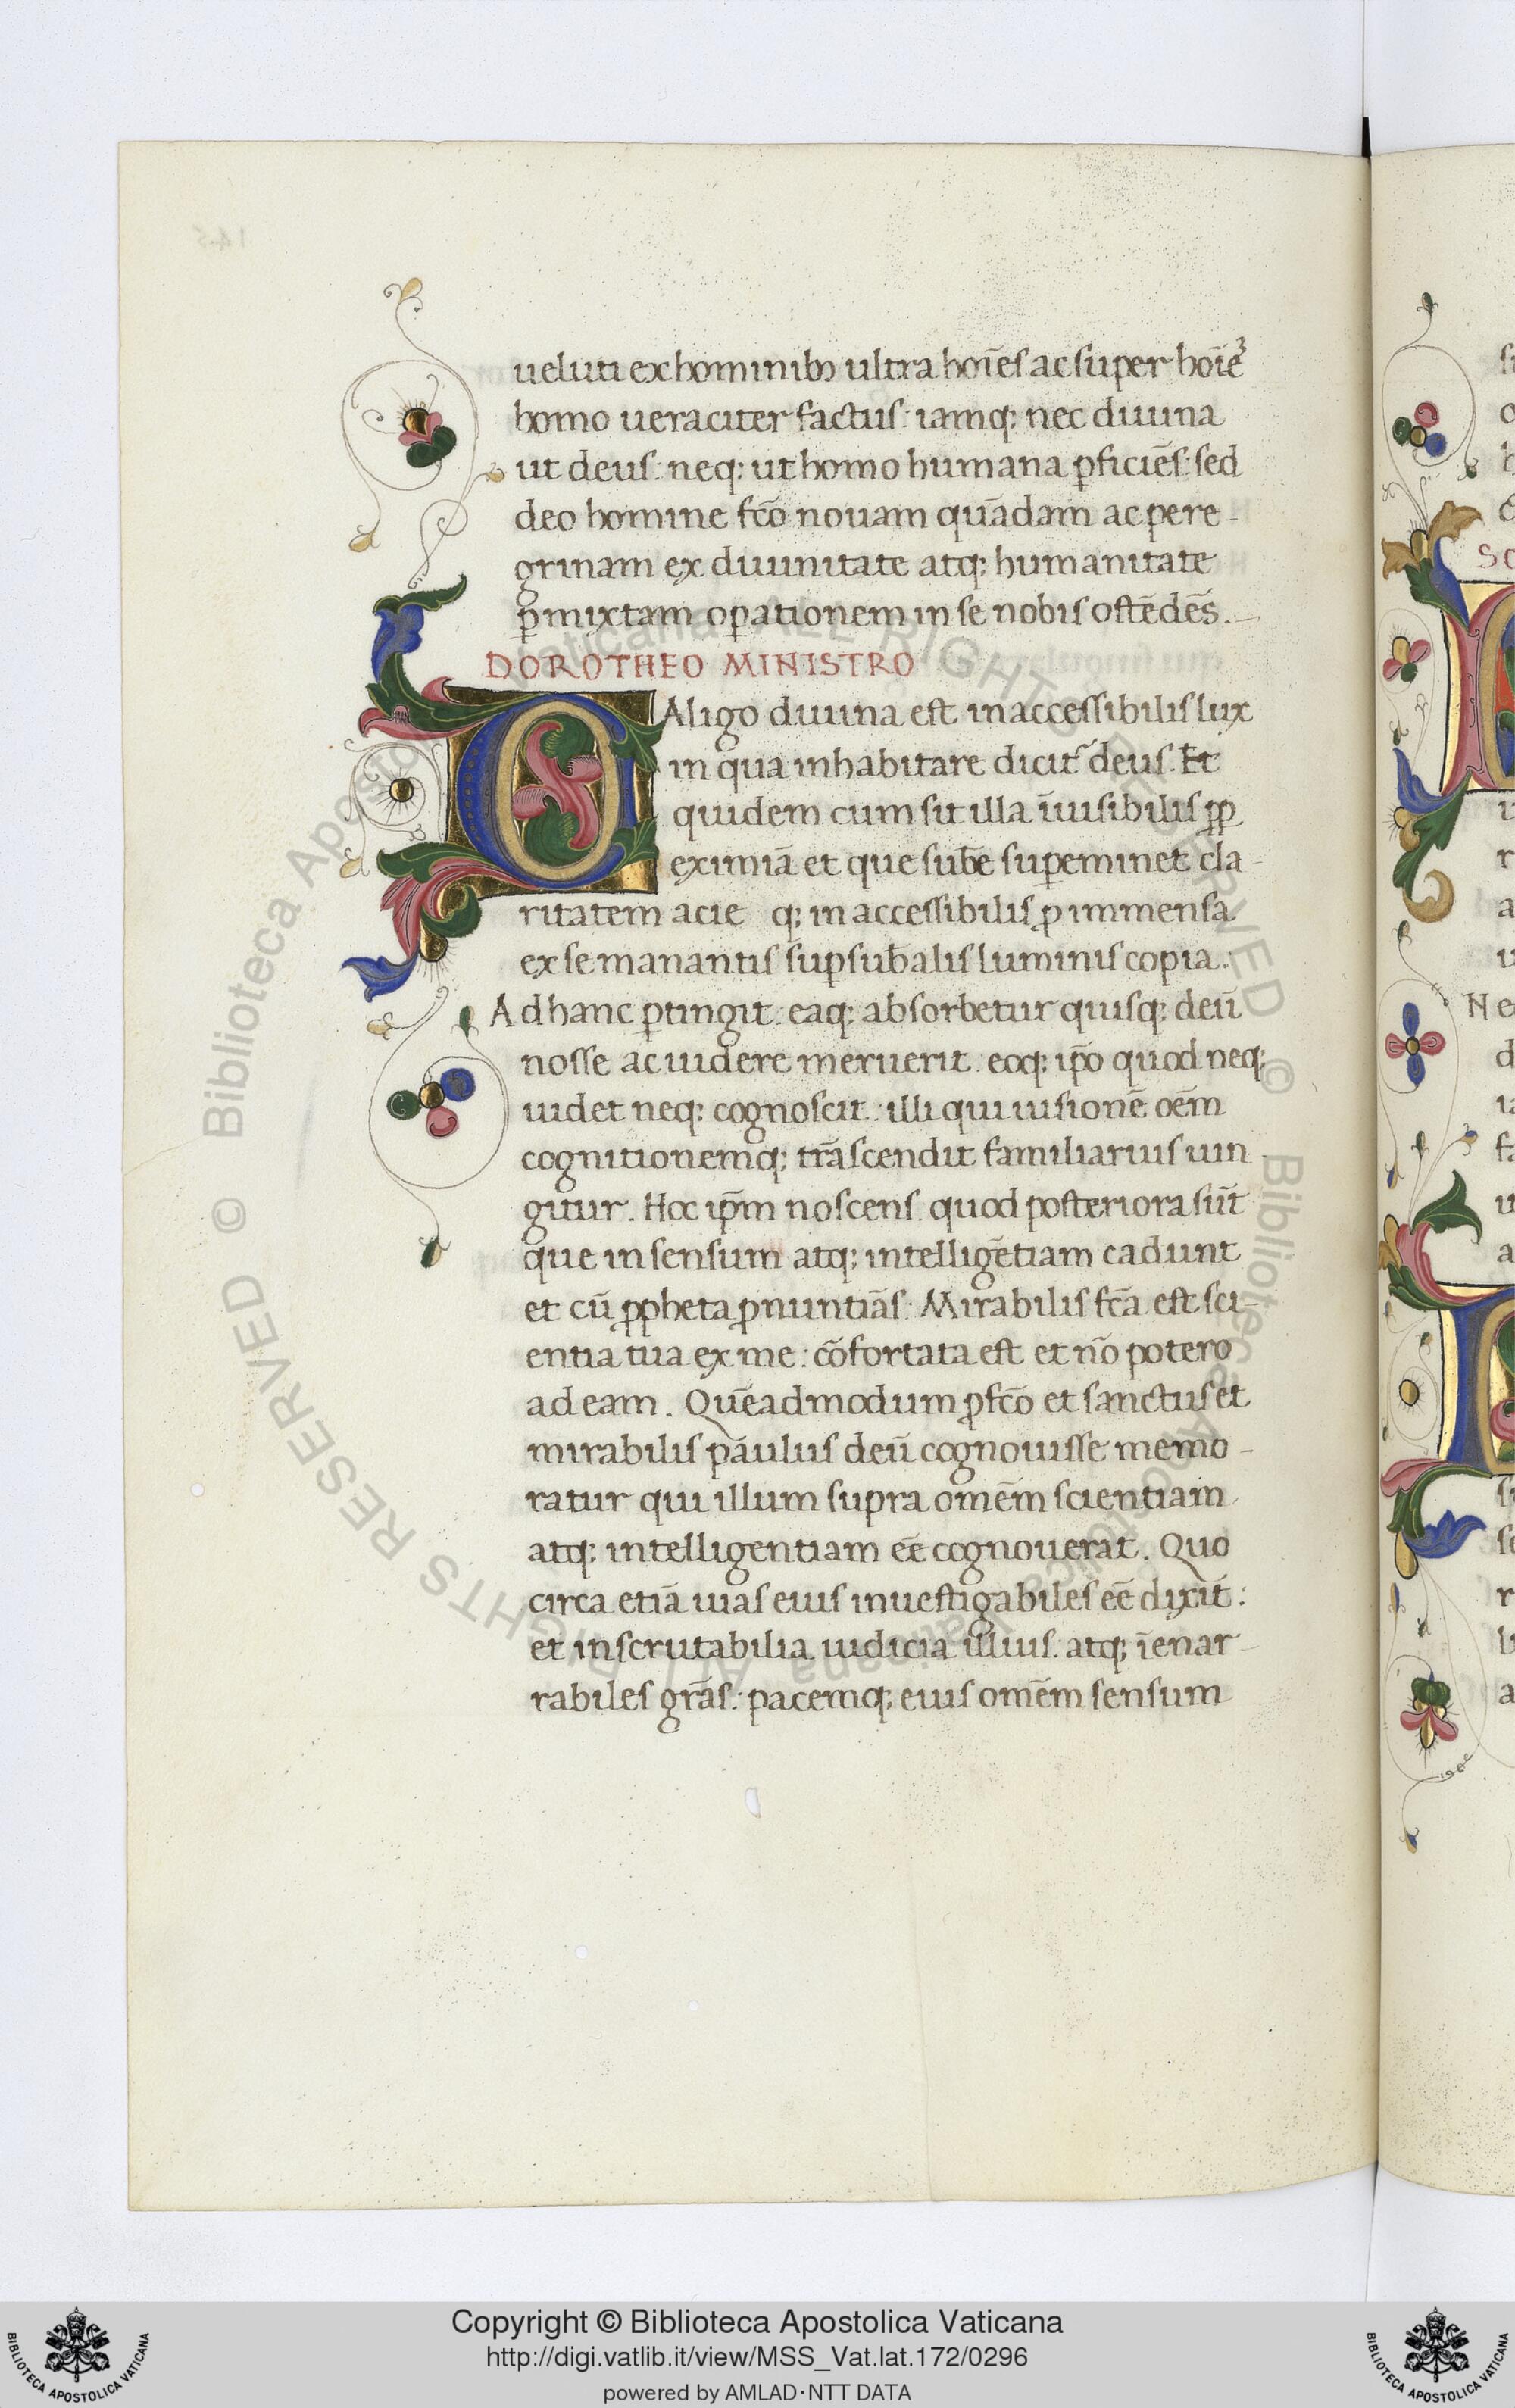 ueluti ex hominibꝫ ultra hoīes ac super hoīeꝫ
homo ueraciter factus: iamq; nec diuina
ut deus: neq; ut homo humana ꝑficiēs: sed
deo homine fc̄o nouam quādam ac pere-
grinam ex diuinitate atq; humanitate
ꝑmixtam oꝑationem in se nobis ostēdēs.
DOROTHEO MINISTRO
CAligo diuina est inaccessibilis lux
in qua inhabitare dicit᷑ deus. Et
quidem cum sit illa īuisibilis ꝓp
eximiā et que sub̄e suꝑeminet cla-
ritatem acie q; inaccessibilis ꝓ immensa
ex se manantis suꝑsub̄alis luminis copia.
Ad hanc ꝑtingit. eaq; absorbetur quisq; deū
nosse ac uidere meruerit. eoq; ip̄o quod neq;
uidet neq; cognoscit: illi qui uisionē oēm
cognitionemq; trāscendit familiarius iun-
gitur. Hoc ip̄m noscens. quod posteriora sūt
que in sensum atq; intelligētiam cadunt
et cū ꝓpheta ꝓnuntiās: Mirabilis fc̄a est sci-
entia tua ex me: cōfortata est et nō potero
ad eam. Quēadmodum ꝓfc̄o et sanctus et
mirabilis páulus deū cognouisse memo-
ratur qui illum supra omēm scientiam
atq; intelligentiam eē cognouerat. Quo
circa etiā uias eius inuestigabiles eē dixit:
et inscrutabilia iudicia illius: atq; īenar-
rabiles gr̄as: pacemq; eius omēm sensum
Copyright © Biblioteca Apostolica Vaticana
http://digi.vatlib.it/view/MSS_Vat.lat.172/0296
powered by AMLAD·NTT DATA